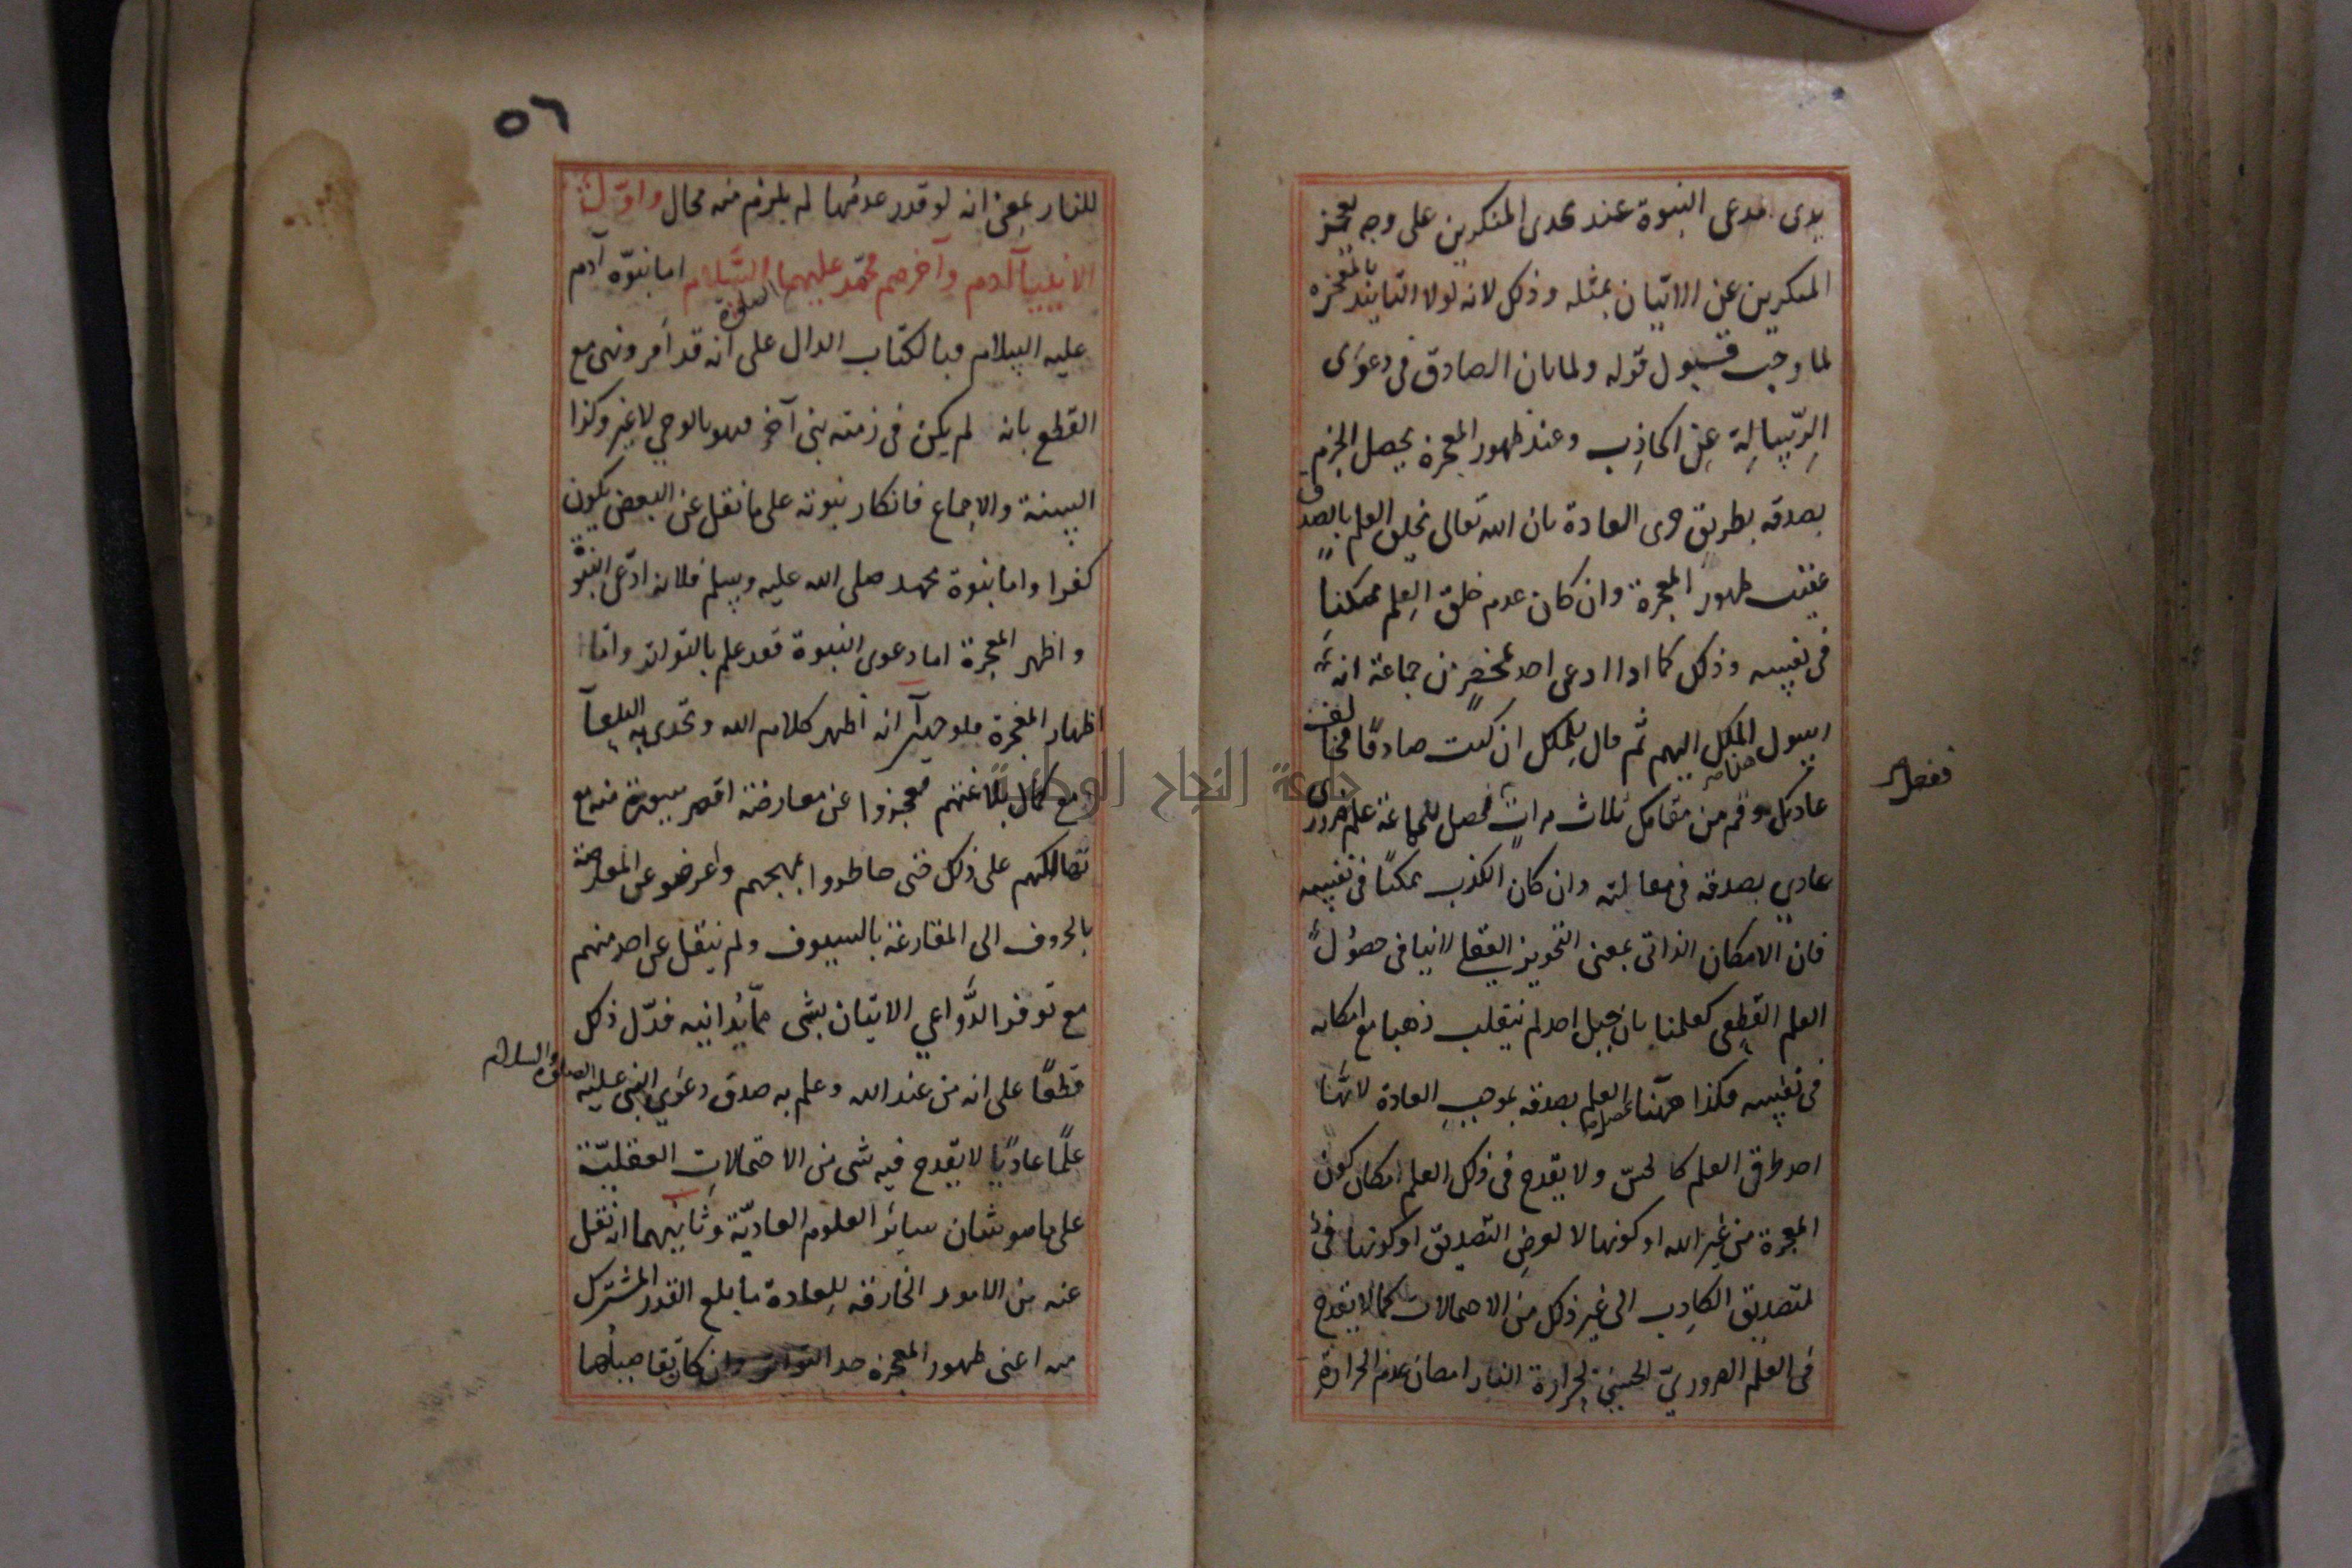 يدى مدعى النبوة عند تحدى المنكرين على وجه يعجز
المنكرين عن الاتيان بمثله وذلك لانه لولا التاييد بالمعجزة
لما وجب قبول قوله ولما بان الصادق فى دعوى
الرسالة عن الكاذب وعند ظهور المعجزة يحصل الجزم
بصدقه بطريق جرى العادة بان الله تعالى يخلق العلم بالصدق
عقيب ظهور المعجزة وان كان عدم خلق العلم ممكنا
فى نفسه وذلك كما اذا ادعى احد بمحضر من جماعة انه
رسول الملك اليهم ثم قال للملك ان كنت صادقا فخالف
عادتك وقم من مقامك ثلاث مرات ففعل
فحصل للجماعة علم ضرورى
عادى بصدقه فى مقالته وان كان الكذب ممكنا فى نفسه
فان الامكان الذاتى بمعنى التجويز العقلى لا ينافى حصول
العلم القطعى كعلمنا بان جبل احد لم ينقلب ذهبا مع امكانه
فى نفسه فكذا ههنا يحصل العلم بصدقه بموجب العادة لانها
احد طرق العلم كالحس ولا يقدح فى ذلك العلم امكان كون
المعجزة من غير الله او كونها لا لغرض التصديق او كونها
لتصديق الكاذب الى غير ذلك من الاحتمالات كما لا يقدح
فى العلم الضرورى الحسى بحرارة النار امكان عدم الحرارة
٥٦
للنار بمعنى انه لو قدر عدمها لم يلزم منه محال واول
الانبيآ آدم وآخرهم محمد عليهما الصلوة السلام اما نبوة آدم
عليه السلام فبالكتاب الدال على انه قد امر ونهى مع
القطع بانه لم يكن فى زمنه نبى آخر فهو بالوحى لا غير وكذا
السنة والاجماع فانكار نبوته على ما نقل عن البعض يكون
كفرا واما نبوة محمد صلى الله عليه وسلم فلانه ادعى النبوة
واظهر المعجزة اما دعوى النبوة فقد علم بالتواتر واما
اظهار المعجزة فلوجهين انه اظهر كلام الله وتحدى به البلغآ
مع كمال بلاغتهم فعجزوا عن معارضة اقصر سورة منه مع
تهالكهم على ذلك حتى خاطروا بمهجهم واعرضو عن المعارضة
بالحروف الى المقارعة بالسيوف ولم ينقل عن احد منهم
مع توفر الدواعي الاتيان بشى مما يدانيه فدل ذلك
قطعا على انه من عند الله وعلم به صدق دعوى النبى عليه الصلوة والسلام
علما عاديا لا يقدح فيه شى من الاحتمالات العقلية
على ما هو شان سائر العلوم العادية وثانيهما انه نقل
عنه من الامور الخارقة للعادة ما بلغ القدر المشترك
منه اعنى ظهور المعجزة حد التواتر وان كان تفاصيلها
جامعة النجاح الوطنية